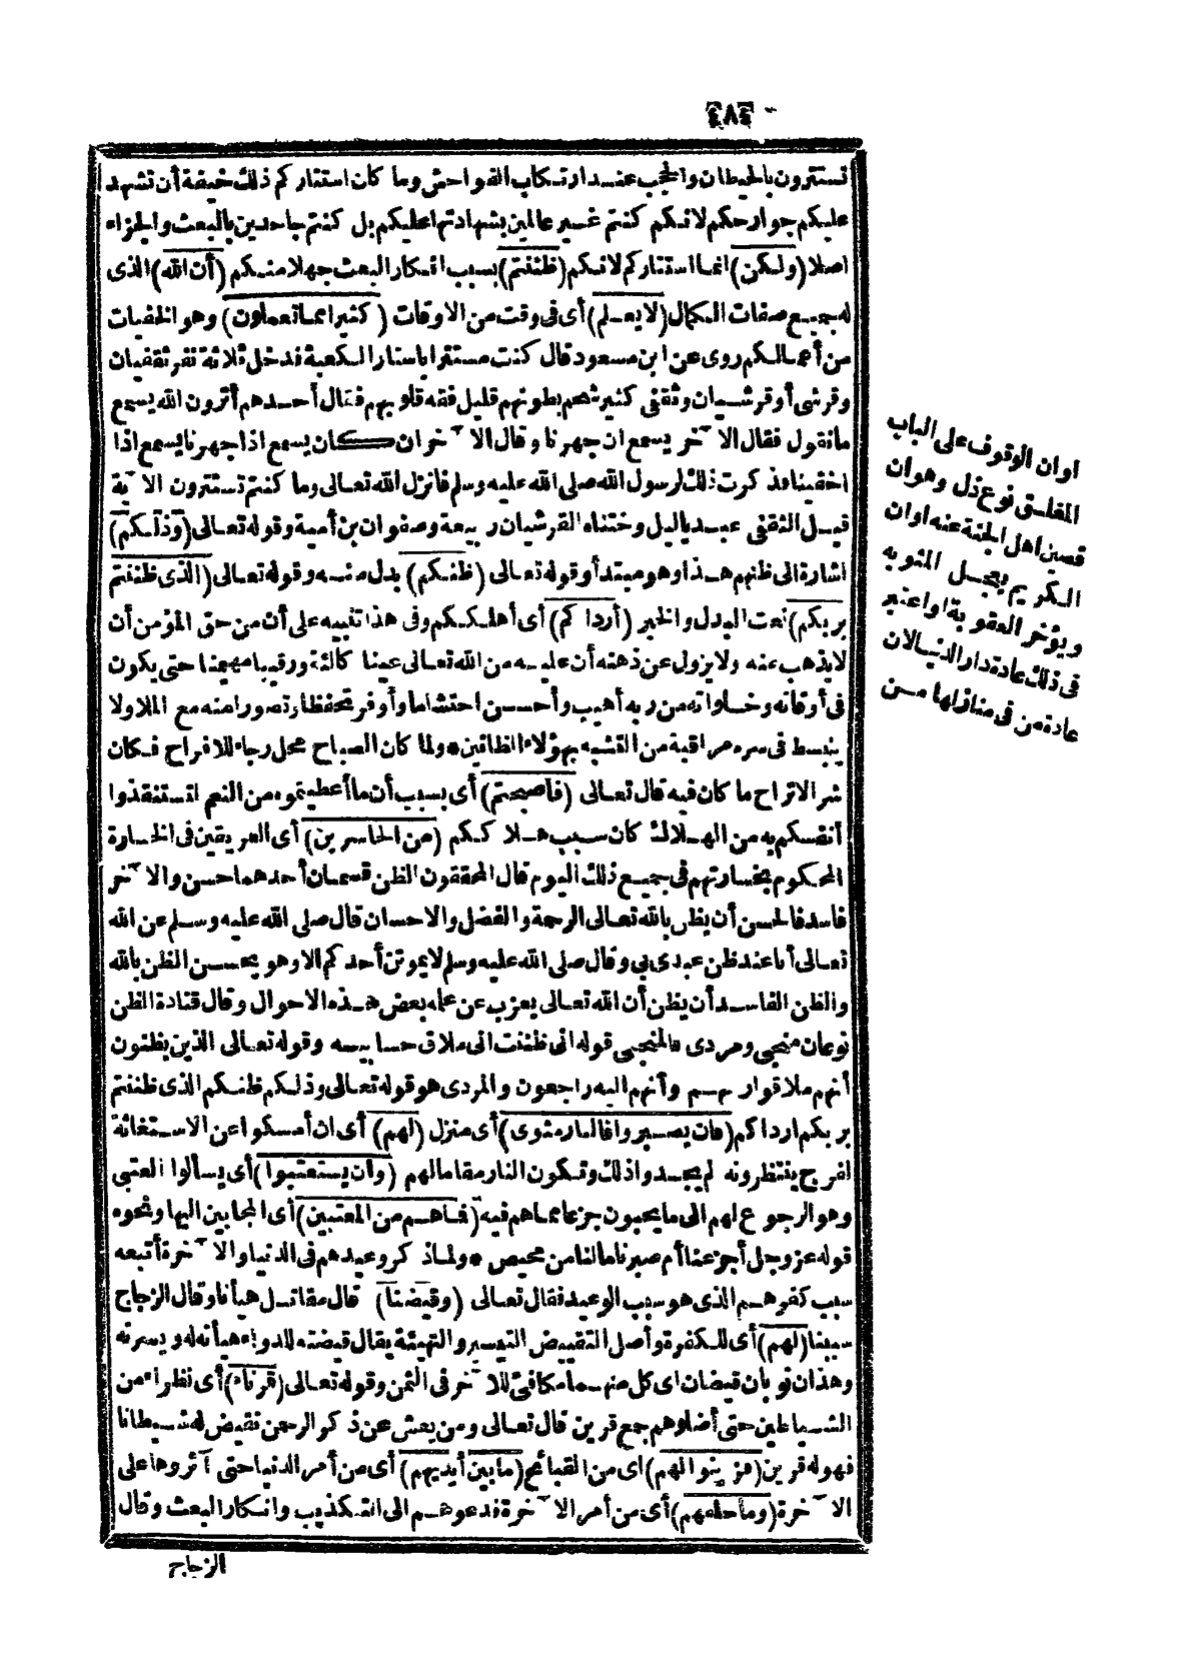 ٤٨٤
تستترون بالحيطان والحجب عند ارتكاب الفواحش وما كان استتاركم ذلك خيفة أن تشهد
عليكم جوارحكم لانكم كنتم غير عالمين بشهادتها عليكم بل كنتم جاحدين بالبعث والجزاء
اصلا (ولكن) انما استتاركم لانكم (ظننتم) بسبب انكار البعث جهلا منكم (أن الله) الذى
له جميع صفات الكمال (لا يعلم) أى فى وقت من الاوقات (كثيرا مما تعملون) وهو الخفيات
من أعمالكم روى عن ابن مسعود قال كنت مستترا باستار الكعبة فدخل ثلاثة نفر ثقفيان
وقرشى أو قرشيان وثقفى كثير شحم بطونهم قليل فقه قلوبهم فقال أحدهم أترون الله يسمع
ما نقول فقال الآخر يسمع ان جهرنا وقال الآخر ان كان يسمع اذا جهرنا يسمع اذا
اخفينا فذكرت ذلك لرسول الله صلى الله عليه وسلم فانزل الله تعالى وما كنتم تستترون الآية
قيل الثقفى عبد ياليل وختناه القرشيان ربيعة وصفوان بن أمية وقوله تعالى (وذلكم)
اشارة الى ظنهم هذا وهو مبتدأ وقوله تعالى (ظنكم) بدل منه وقوله تعالى (الذى ظننتم
بربكم) نعت البدل والخبر (أرداكم) أى أهلككم وفى هذا تنبيه على أن من حق المؤمن أن
لا يذهب عنه ولا يزول عن ذهنه أن عليه من الله تعالى عينا كالئة ورقيبا مهيمنا حتى يكون
فى أوقاته وخلواته من ربه أهيب وأحسن احتشاما وأوفر تحفظا وتصونا منه مع الملا ولا
ينبسط فى سره مراقبة من التشبه بهؤلاء الظانين * ولما كان الصباح محل رجاء للافراح فكان
شر الاتراح ما كان فيه قال تعالى (فأصبحتم) أى بسبب أن ما أعطيتموه من النعم لتستنقذوا
أنفسكم به من الهلاك كان سبب هلاككم (من الخاسرين) أى العريقين فى الخسارة
المحكوم بخسارتهم فى جميع ذلك اليوم قال المحققون الظن قسمان أحدهما حسن والآخر
فاسد فالحسن أن يظن بالله تعالى الرحمة والفضل والاحسان قال صلى الله عليه وسلم عن الله
تعالى أنا عند ظن عبدى بى وقال صلى الله عليه وسلم لا يموتن أحدكم الا وهو يحسن الظن بالله
والظن الفاسد أن يظن أن الله تعالى يعزب عن علمه بعض هذه الاحوال وقال قتادة الظن
نوعان منجى ومردى فالمنجى قوله انى ظننت انى ملاق حسابيه وقوله تعالى الذين يظنون
أنهم ملاقوا ربهم وأنهم اليه راجعون والمردى هو قوله تعالى وذلكم ظنكم الذى ظننتم
بربكم ارداكم (فان يصبروا فالنار مثوى) أى منزل (لهم) أى ان أمسكوا عن الاستغاثة
لفرج ينتظرونه لم يجدوا ذلك وتكون النار مقاما لهم (وان يستعتبوا) أى يسألوا العتبى
وهو الرجوع لهم الى ما يحبون جزعا مما هم فيه (فما هم من المعتبين) أى المجابين اليها ونحوه
قوله عز وجل أجزعنا أم صبرنا ما لنا من محيص * ولما ذكر وعيدهم فى الدنيا والآخرة أتبعه
سبب كفرهم الذى هو سبب الوعيد فقال تعالى (وقيضنا) قال مقاتل هيأنا وقال الزجاج
سببنا (لهم) أى للكفرة وأصل التقييض التيسير والتهيئة يقال قيضته للدواء هيأته له ويسرته
وهذان ثوبان قيضان اى كل منهما مكافئ للآخر فى الثمن وقوله تعالى (قرناء) أى نظراء من
الشياطين حتى أضلوهم جمع قرين قال تعالى ومن يعش عن ذكر الرحمن نقيض له شيطانا
فهو له قرين (فزينوا لهم) اى من القبائح (ما بين أيديهم) أى من أمر الدنيا حتى آثروها على
الآخرة (وما خلفهم) أى من أمر الآخرة فدعوهم الى التكذيب وانكار البعث وقال
الزجاج
اوان الوقوف على الباب
المغلق نوع ذل وهوان
فصين اهل الجنة عنه اوان
الكريم يعجل المثوبه
ويؤخر العقوبة او اعتبر
فى ذلك عادة دار الدنيا لان
عادة من فى منازلها من